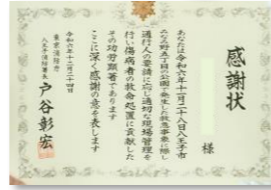 感謝状
様
あなたは令和六年十一月二十八日八王子市
こな野五丁目の公園で発生した救急事象に際し
通行人の要請に応じ適切な現場管理を
行い傷病者の救命処置に貢献した
その功労顕著であります
ここに深く感謝の意を表します
令和六年十二月二十四日
東京消防庁
八王子消防署長
戸谷彰宏